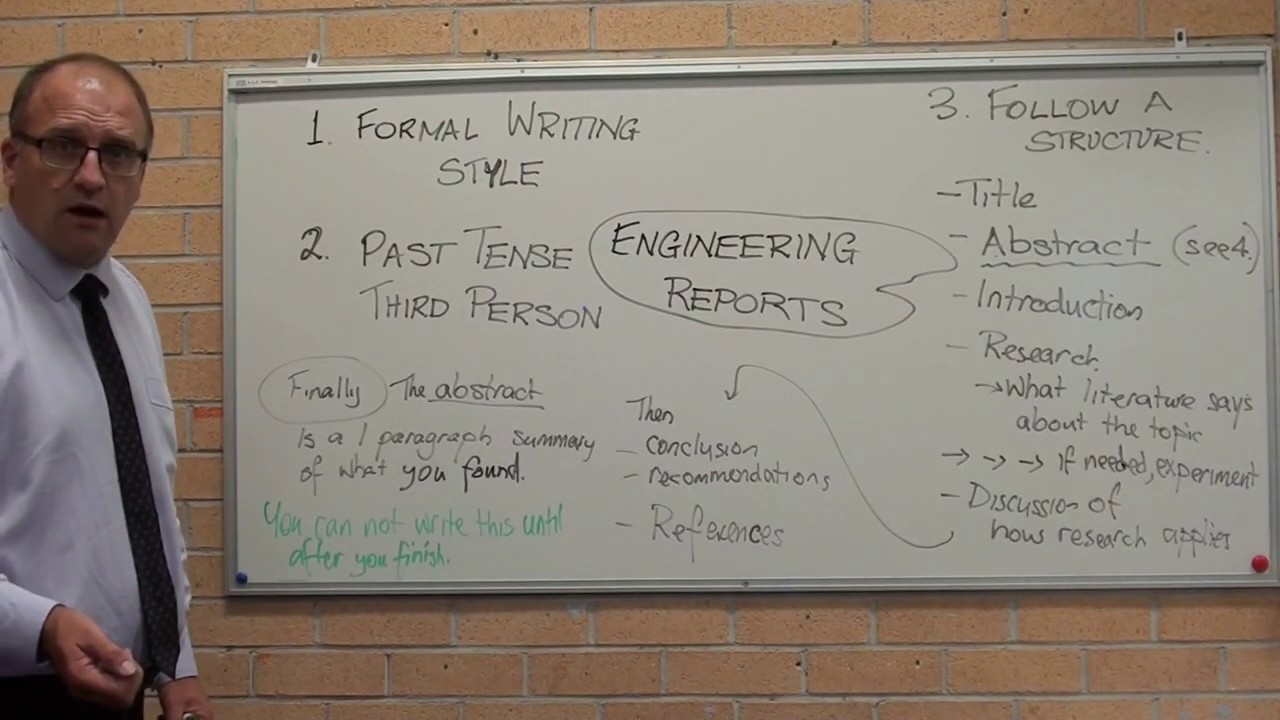 1. FORMAL WRITING
STYLE
2. PAST TENSE
THIRD PERSON
ENGINEERING
REPORTS
3. FOLLOW A
STRUCTURE.
- Title
- Abstract (see 4.)
- Introduction
- Research
→ What literature says
about the topic
→ → → If needed, experiment
- Discussion of
how research applies
Then
- conclusion
- recommendations
- References
Finally The abstract
Is a 1 paragraph summary
of what you found.
You can not write this until
after you finish.